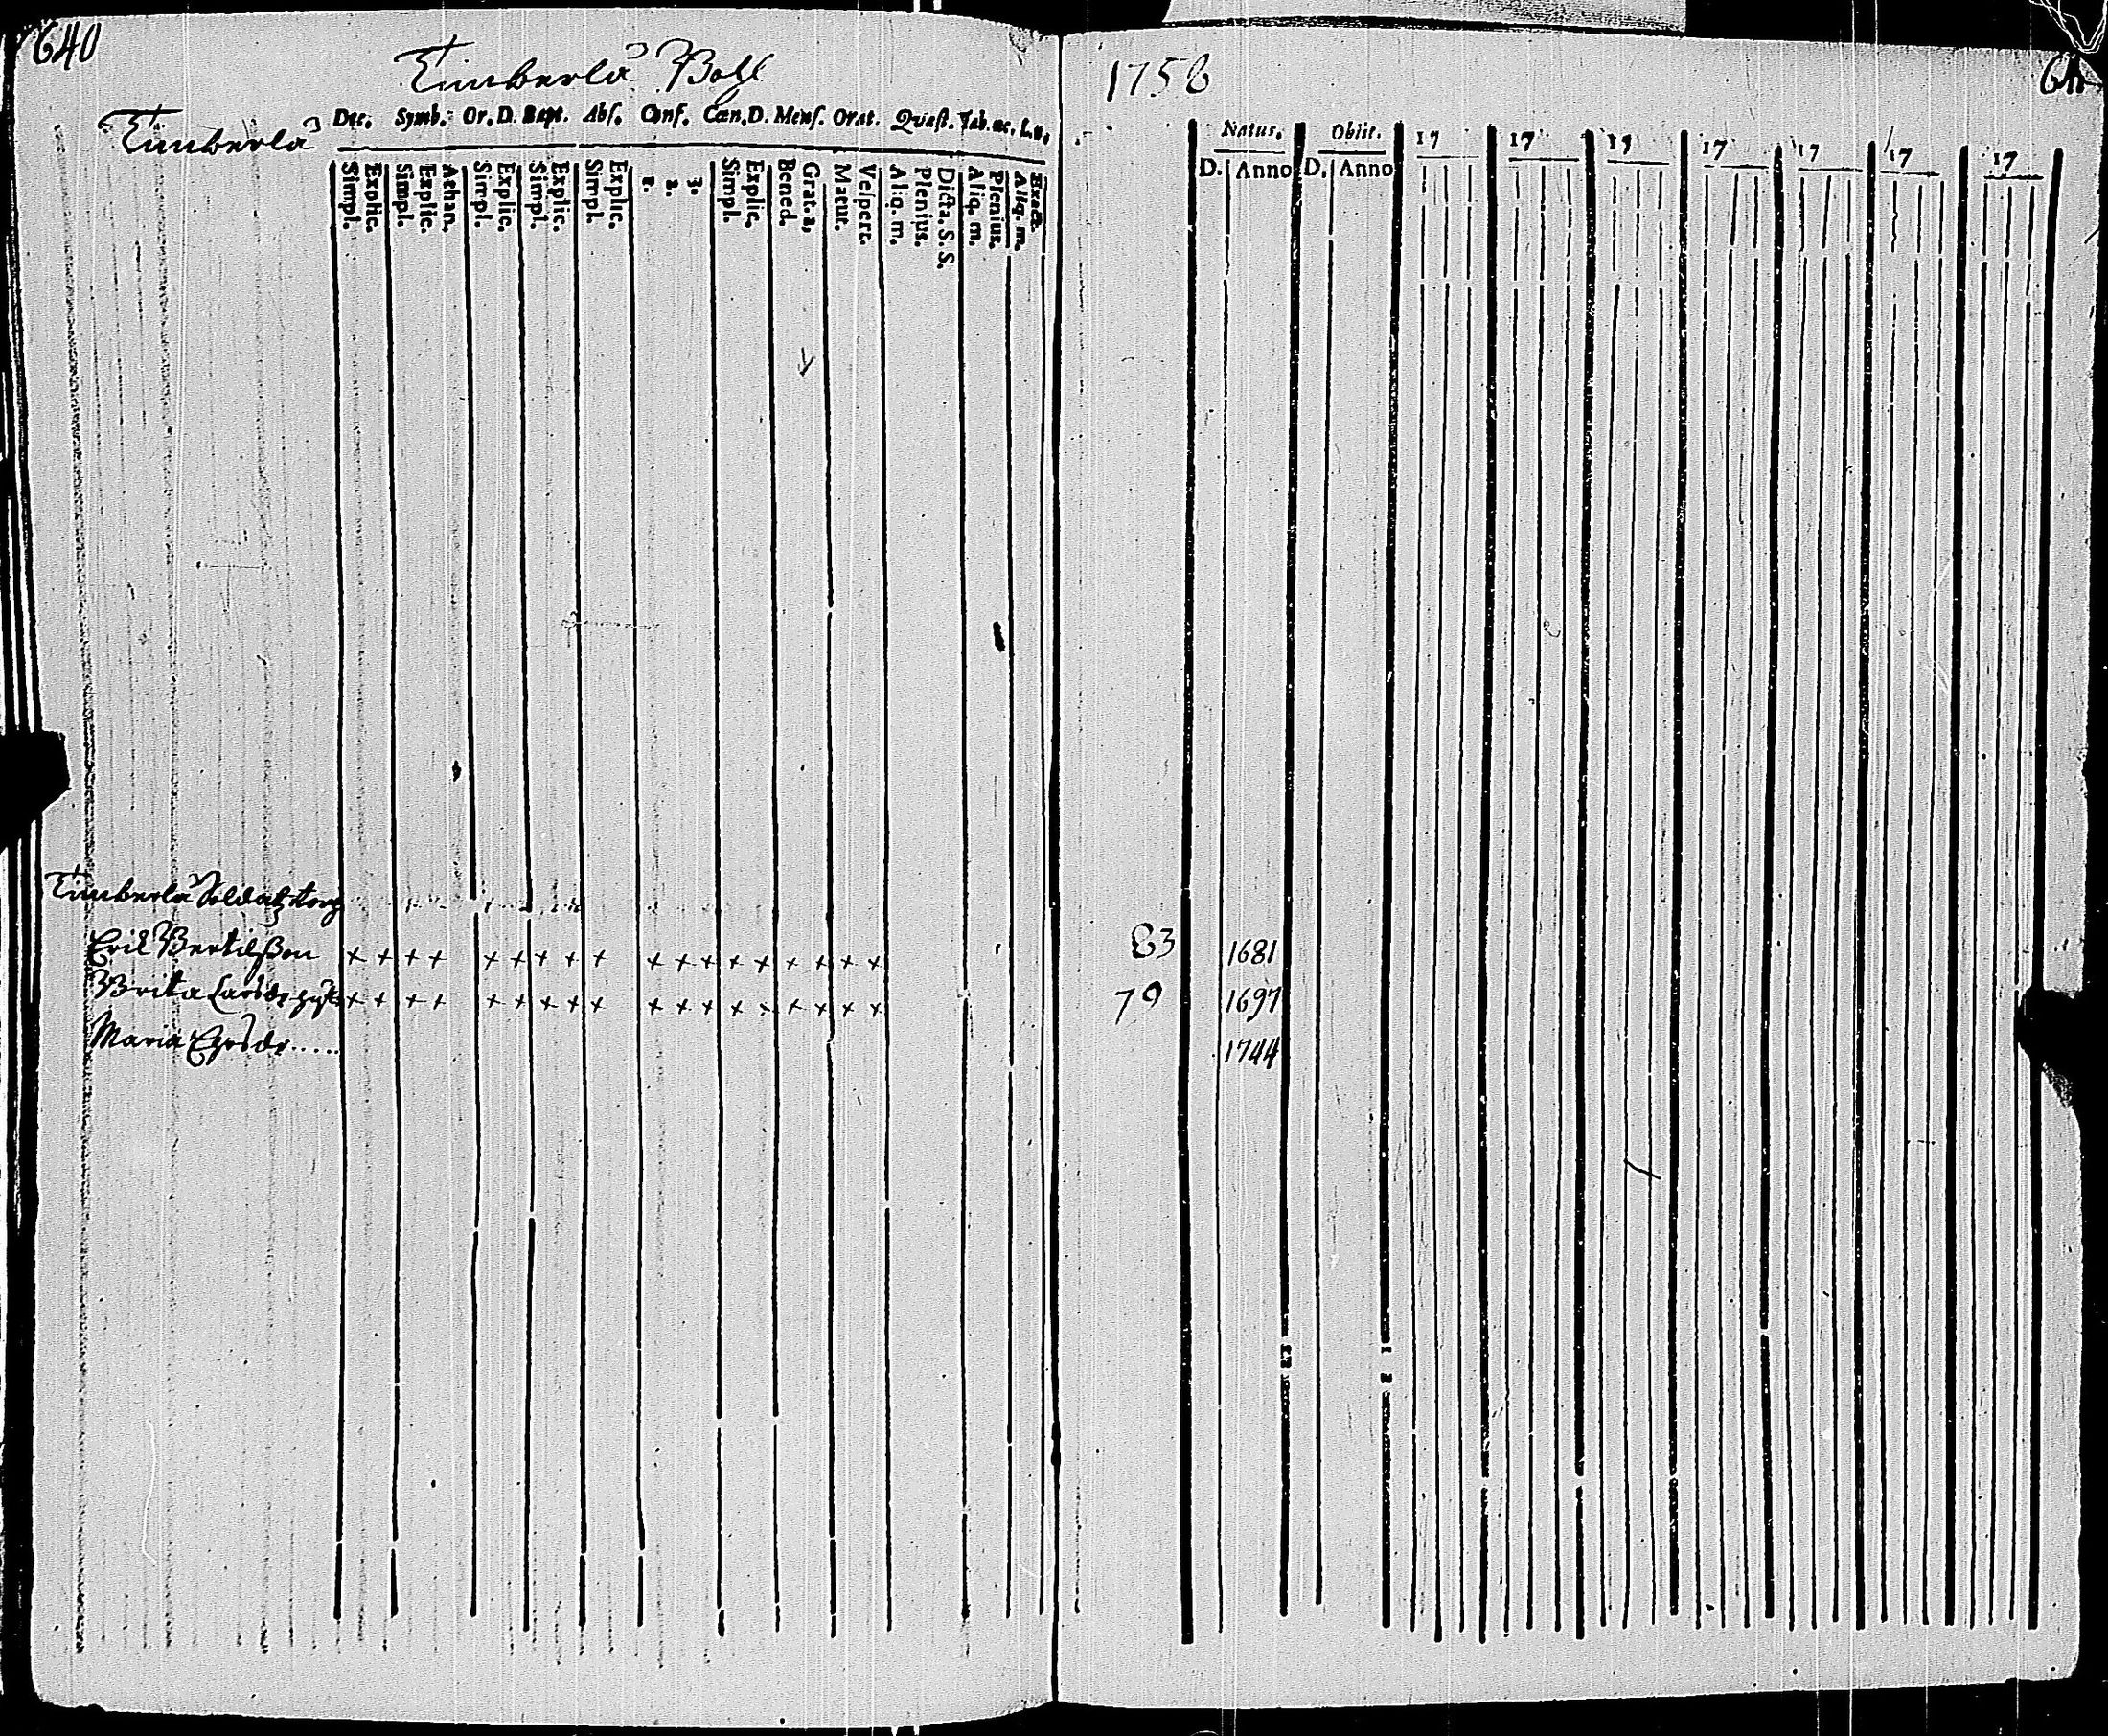 640
Timberlå Bohl
Timberlå
Dec. Symb. Or. D. Bapt. Abs. Conf. Cœn. D. Mens. Orat. Quæst. Tab. œc. L. n.
Simpl. Explic. Simpl. Explic. Athan. Simpl. Explic. Simpl. Explic. Simpl. Explic. 1. 2. 3. Simpl. Explic. Bened. Grat. a. Matut. Vespert. Aliq. m. Plenius. Dicta. S. S. Aliq. m. Plenius. Aliq. m. Exacte.
Timberlå Soldatztorp
Erik Bertilßon × × × × × × × × × × × × × × × × × ×
Brita Larsdr × × × × × × × × × × × × × × × × × ×
Maria Ersdr.....
1758
Natus. Obiit. 17 17 17 17 17 17 17
D. Anno D. Anno
83 1681
79 1697
1744